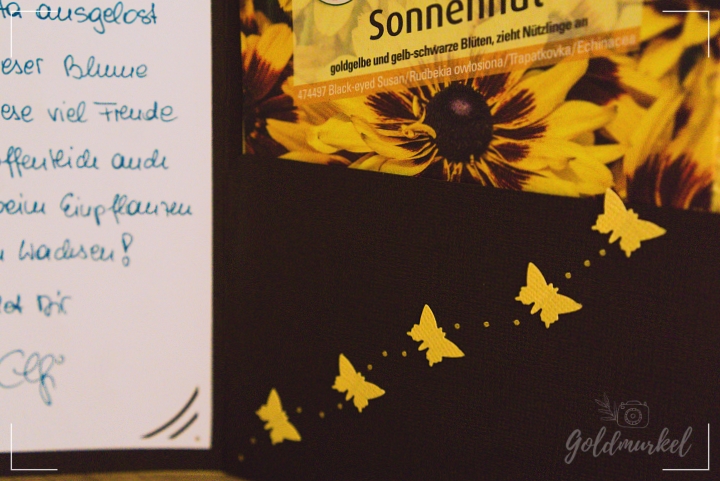 ausgelost
Blume
viel Freude
auch
beim Einpflanzen
Wachsen!
Dir
Sonnenhut
goldgelbe und gelb-schwarze Blüten, zieht Nützlinge an
474497 Black-eyed Susan/Rudbekia owlosiona/Trapatkovka/Echinacea
Goldmurkel